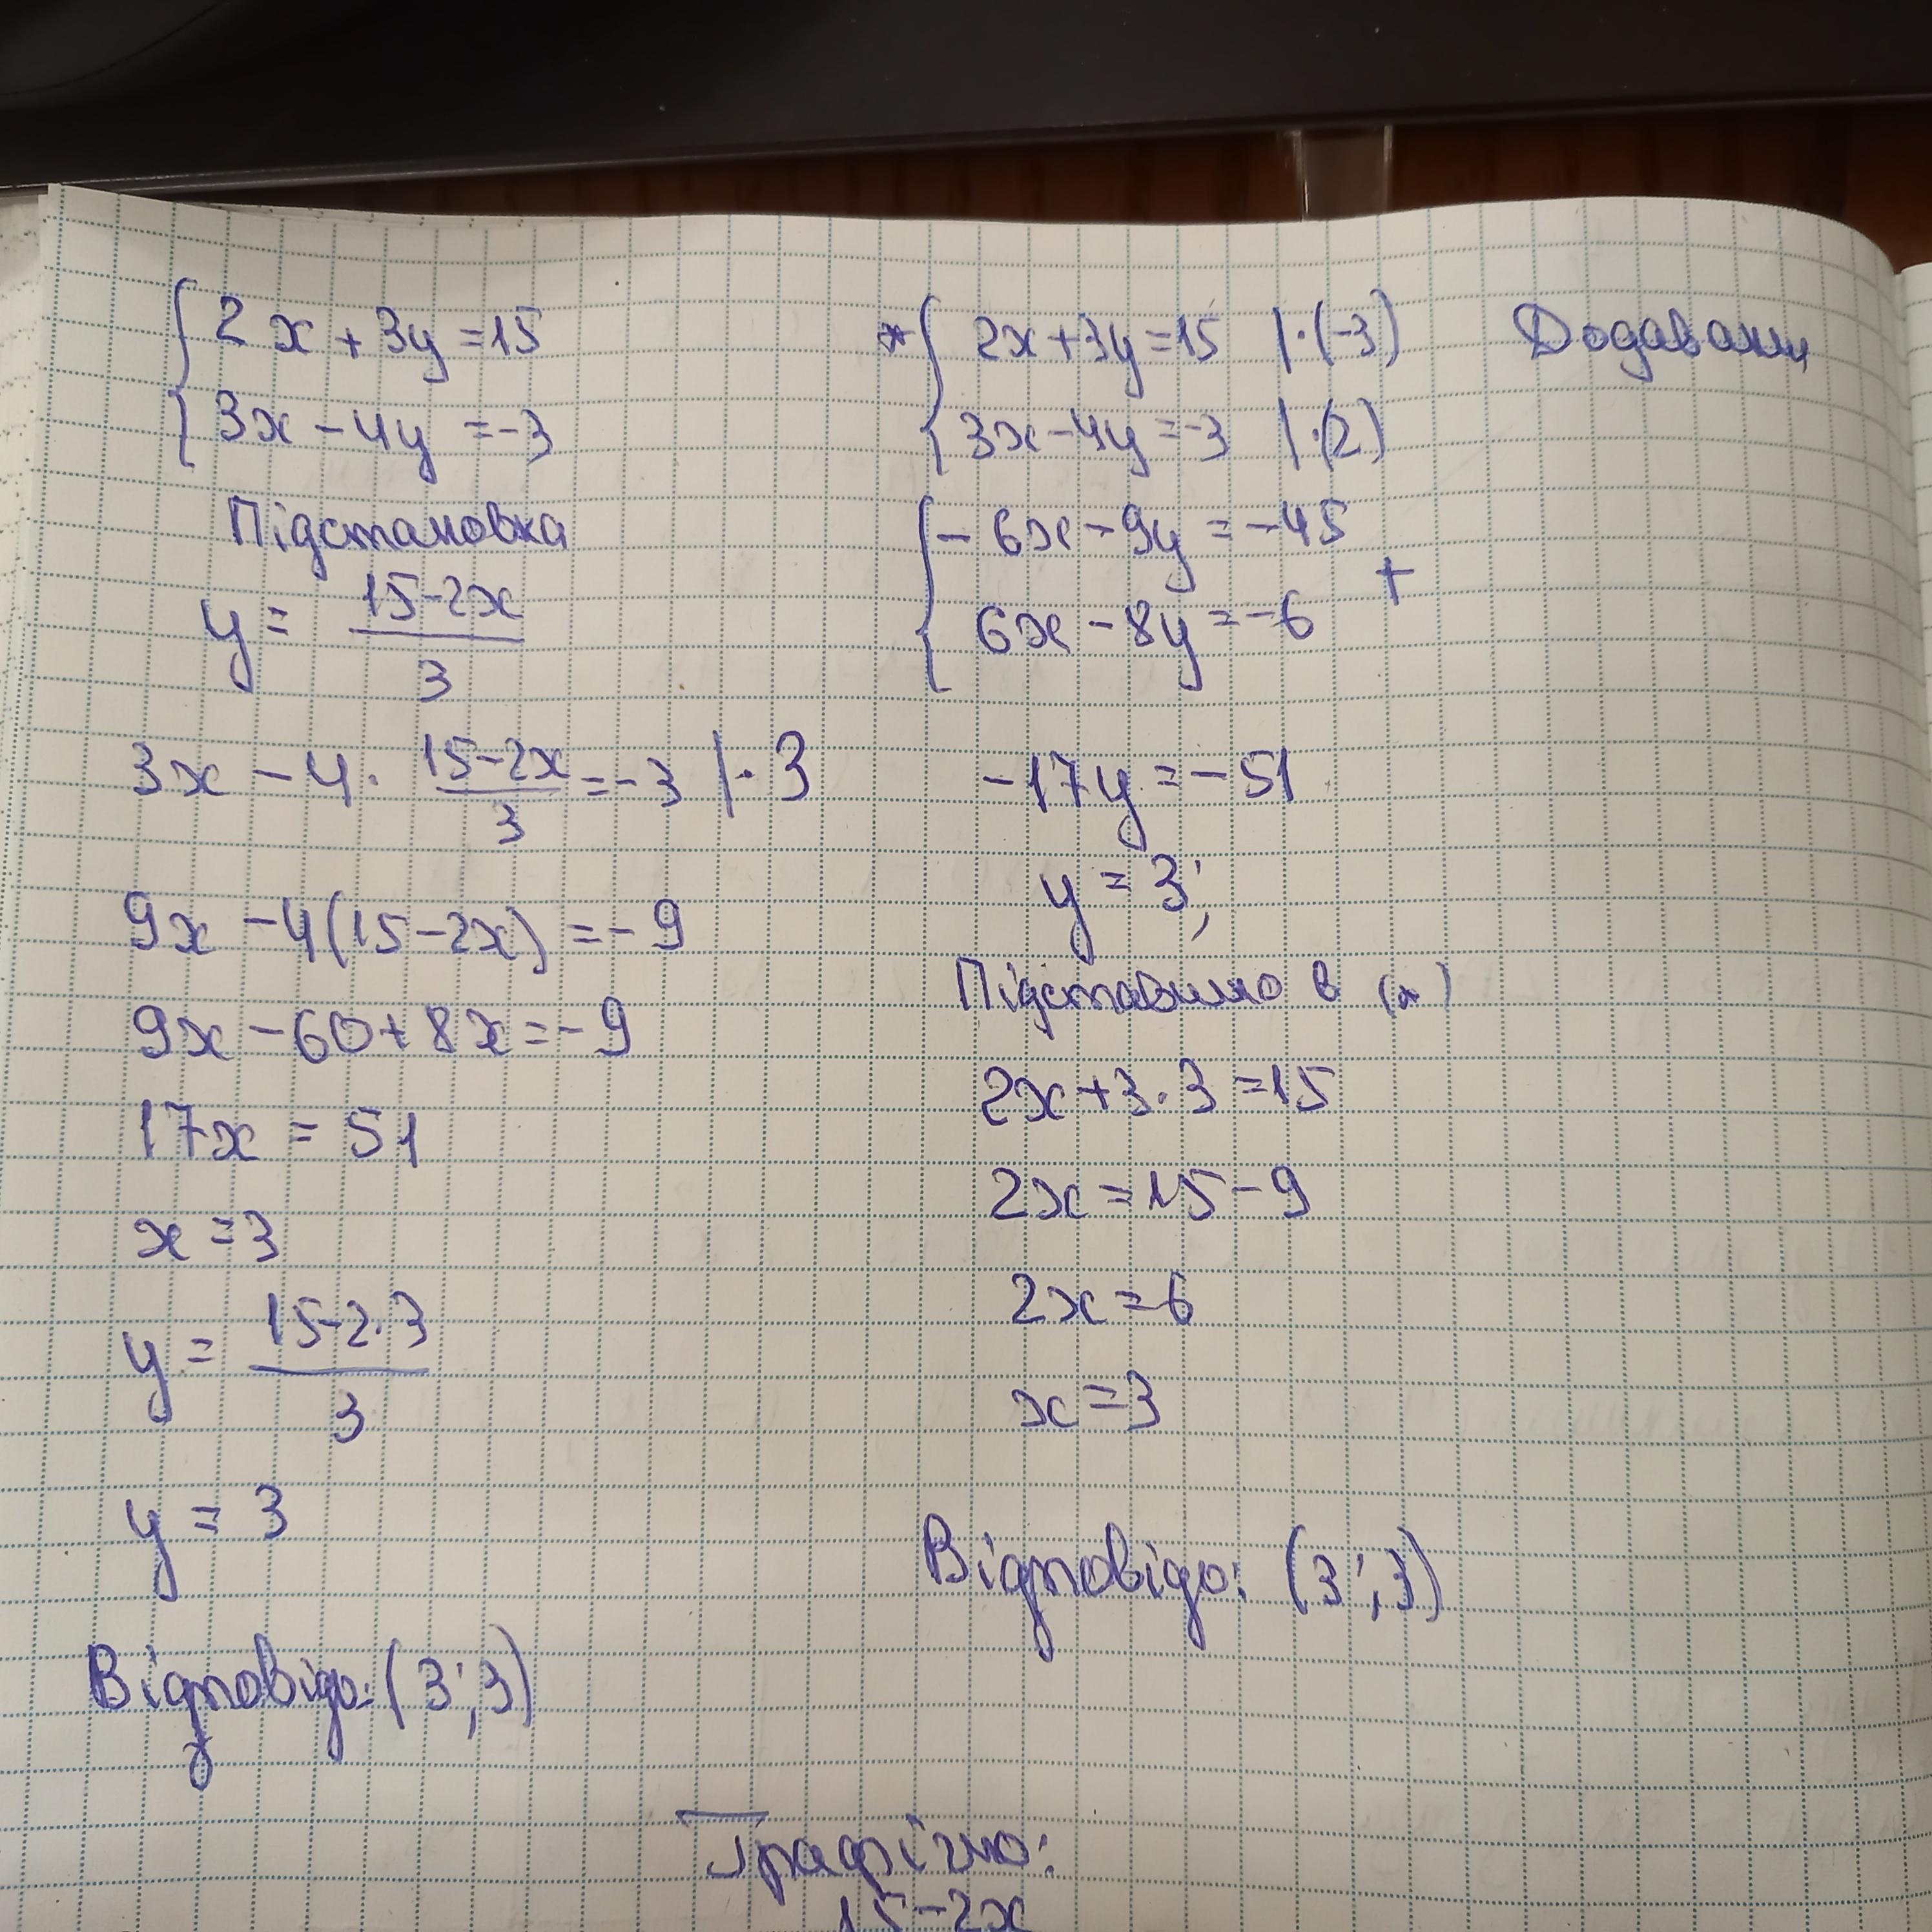 2x + 3y = 15
3x - 4y = -3
Підстановка
y = 15-2x
3
3x - 4 · 15-2x = -3 | · 3
3
9x - 4(15-2x) = -9
9x - 60 + 8x = -9
17x = 51
x = 3
y = 15-2·3
3
y = 3
Відповідь: (3;3)
* 2x + 3y = 15 | ·(-3) Додавання
3x - 4y = -3 | ·(2)
- 6x - 9y = -45
+
6x - 8y = -6
-17y = -51
y = 3;
Підставимо в (*)
2x + 3·3 = 15
2x = 15 - 9
2x = 6
x = 3
Відповідь: (3;3)
Графічно:
15-2x